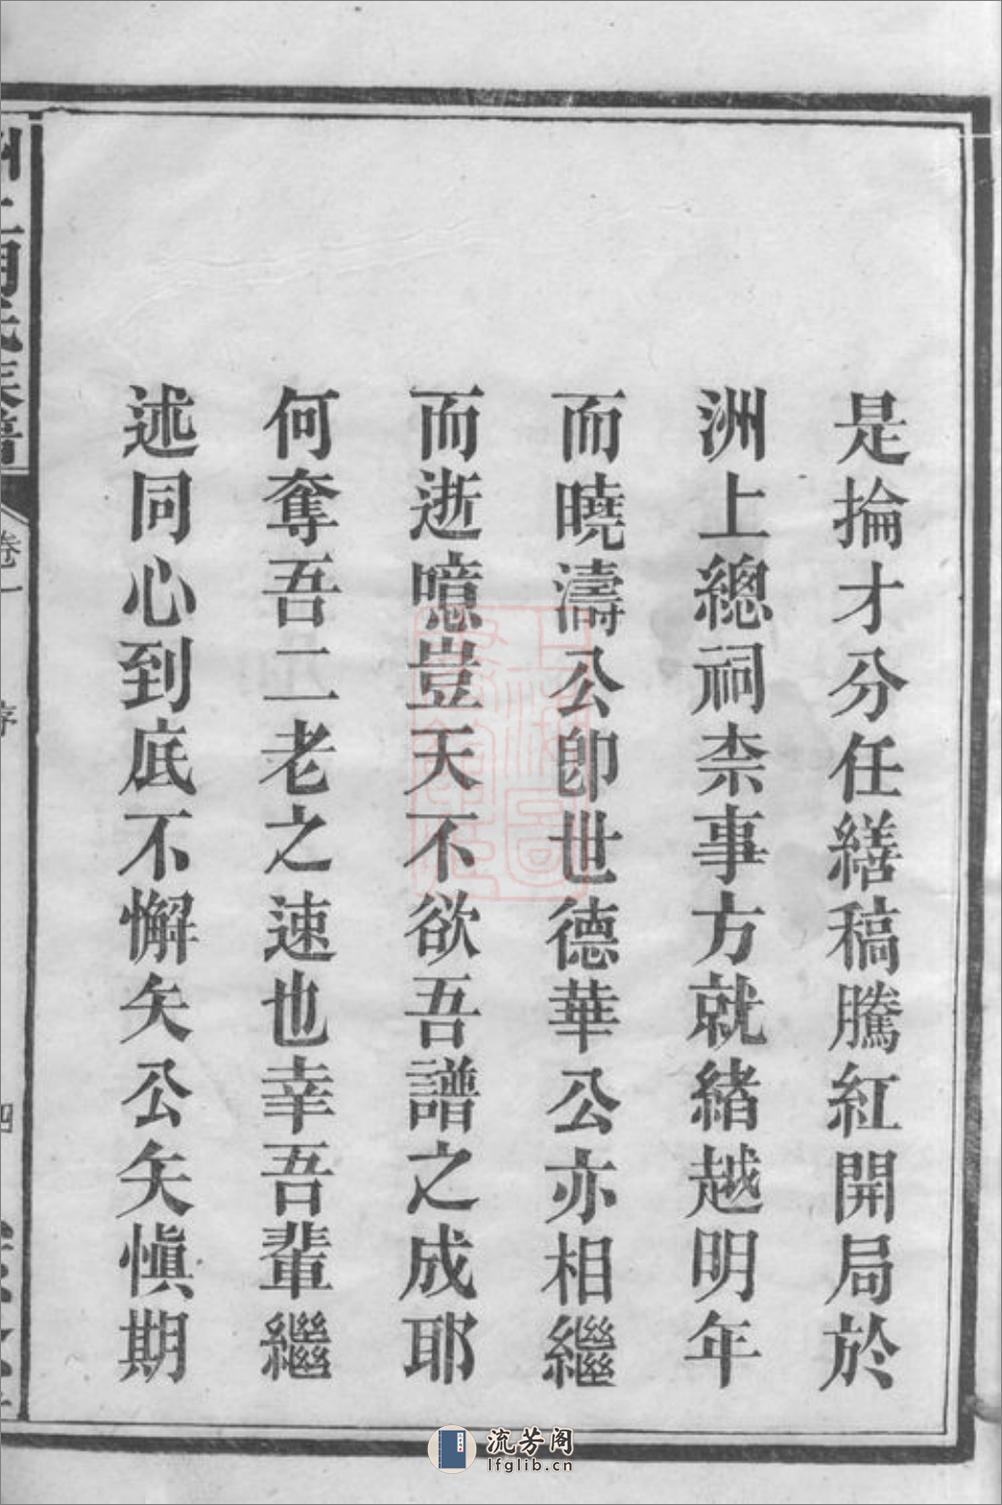 是掄才分任繕稿騰紅開局於
洲上總祠柰事方就緒越明年
而曉濤公卽世德華公亦相繼
而逝噫豈天不欲吾譜之成耶
何奪吾二老之速也幸吾輩繼
述同心到底不懈矢公矢愼期
卷一
序
四
流芳阁
lfglib.cn